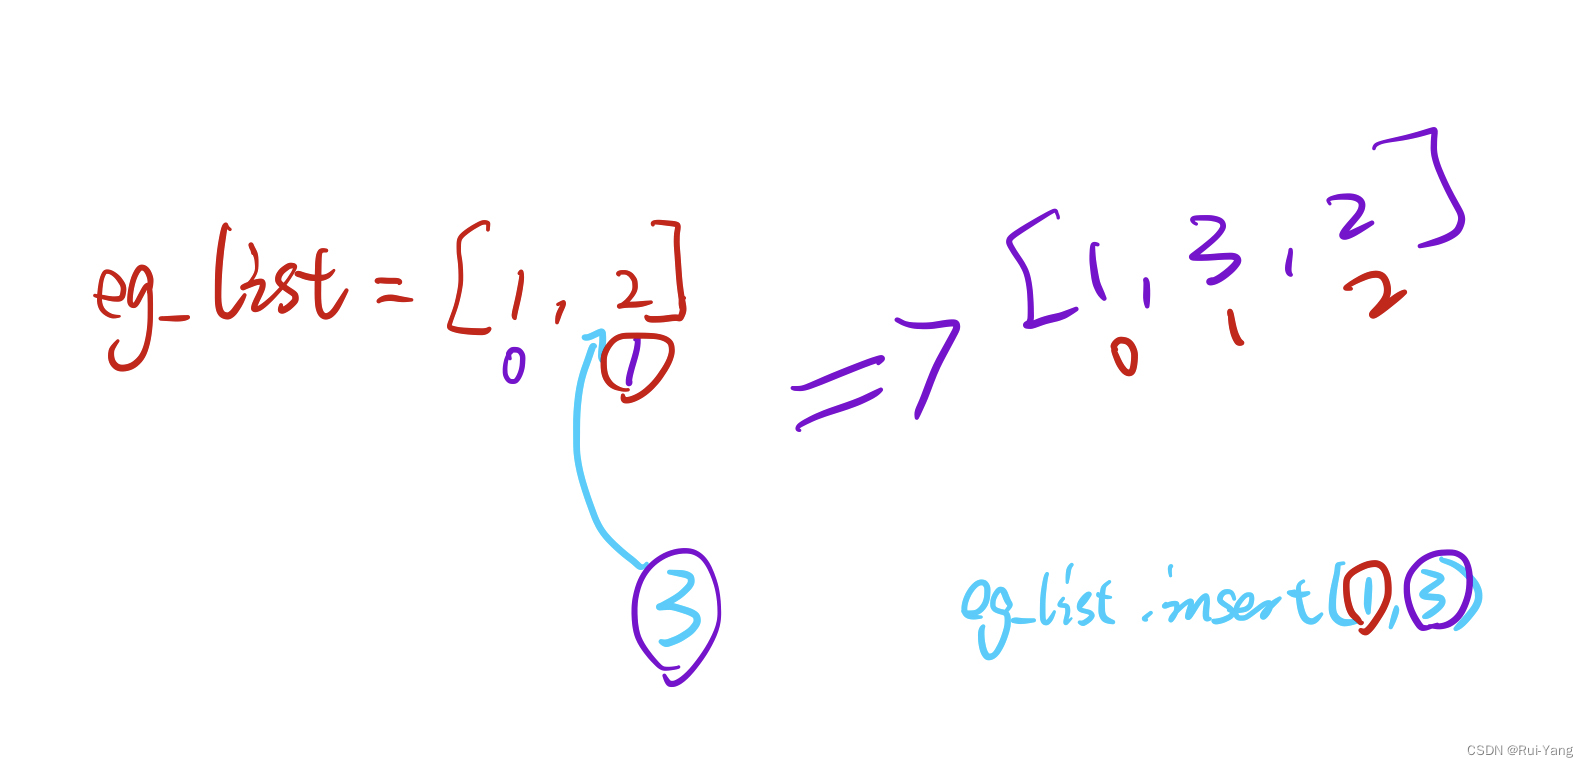 eg_list = [1, 2]
0 1
=> [1, 3, 2]
0 1 2
3
eg_list.insert(1,3)
CSDN @Rui-Yang